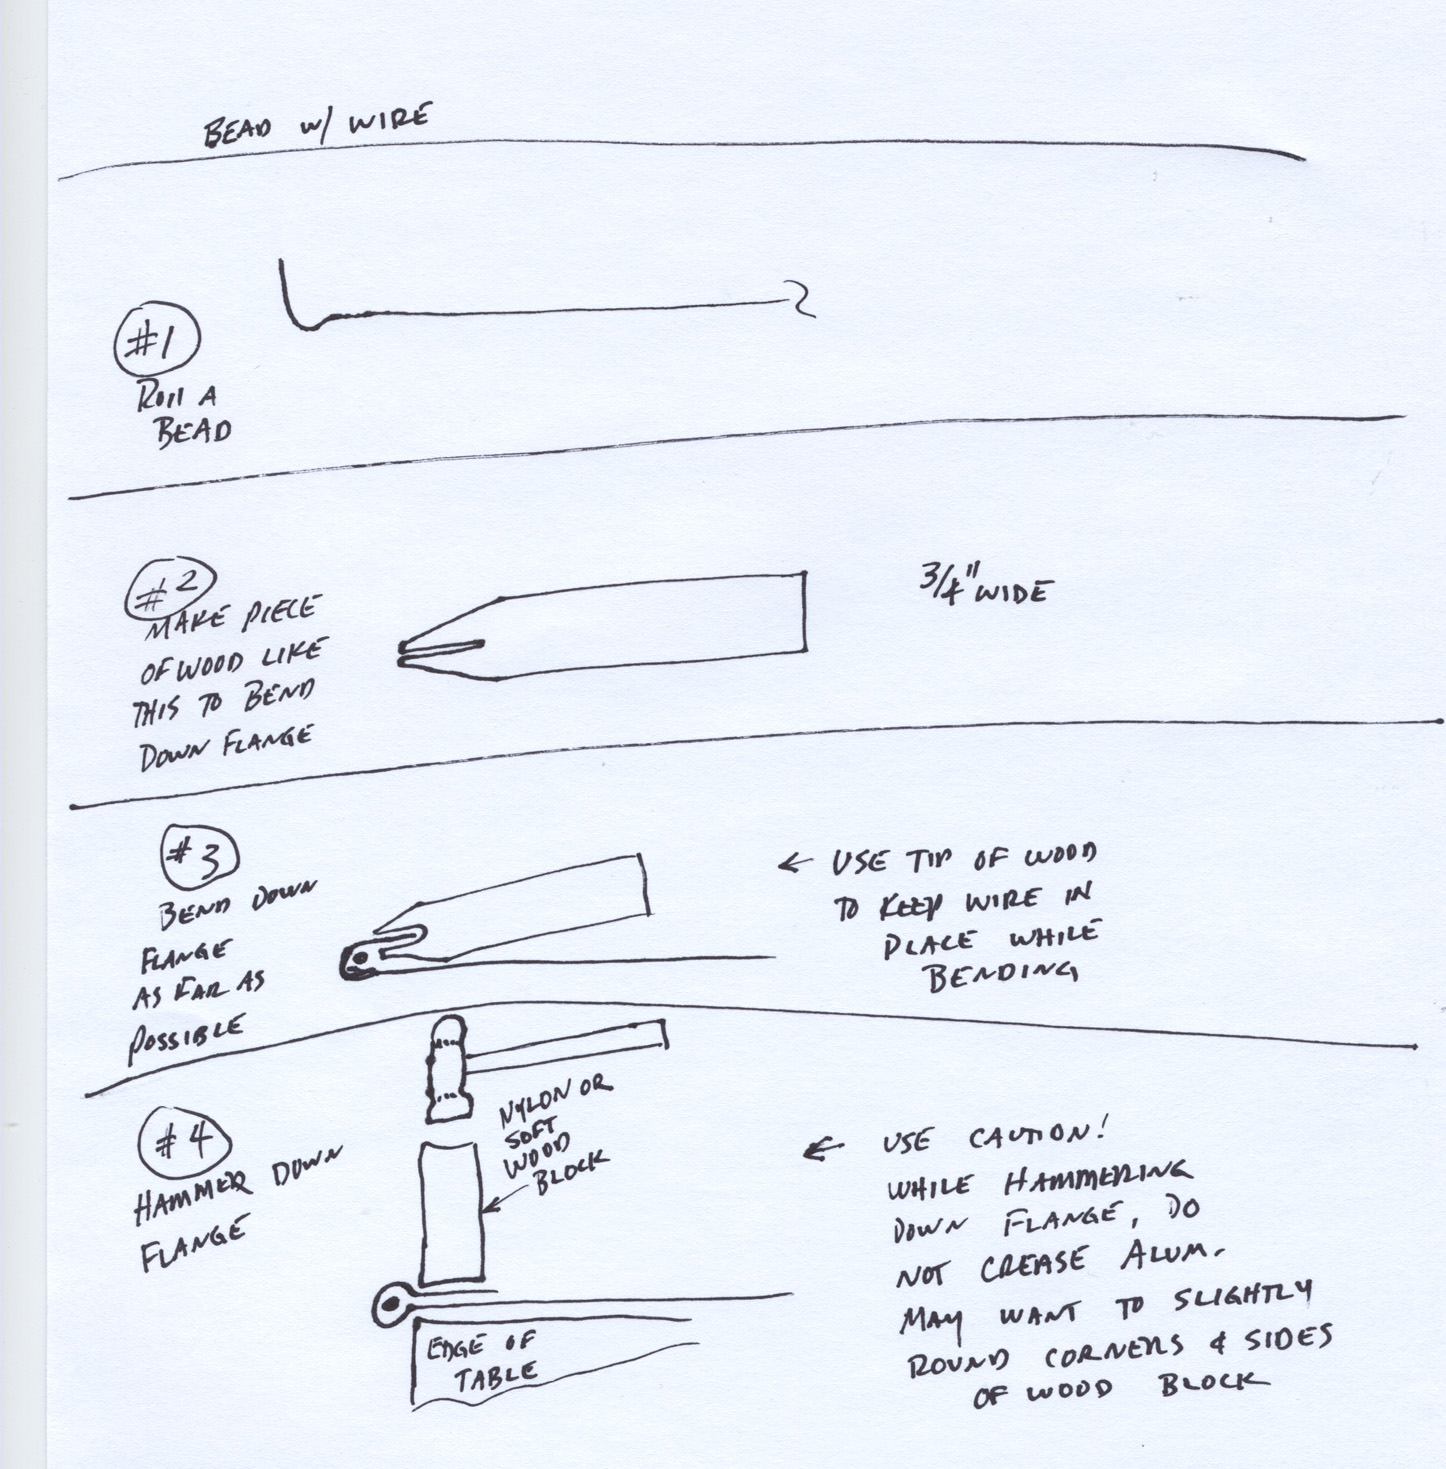 BEAD W/ WIRE
#1
Roll A
BEAD
#2
MAKE PIECE
OF WOOD LIKE
THIS TO BEND
DOWN FLANGE
3/4" WIDE
#3
BEND DOWN
FLANGE
AS FAR AS
POSSIBLE
← USE TIP OF WOOD
TO KEEP WIRE IN
PLACE WHILE
BENDING
#4
HAMMER DOWN
FLANGE
NYLON OR
SOFT
WOOD
BLOCK
EDGE OF
TABLE
← USE CAUTION!
WHILE HAMMERING
DOWN FLANGE, DO
NOT CREASE ALUM.
MAY WANT TO SLIGHTLY
ROUND CORNERS & SIDES
OF WOOD BLOCK